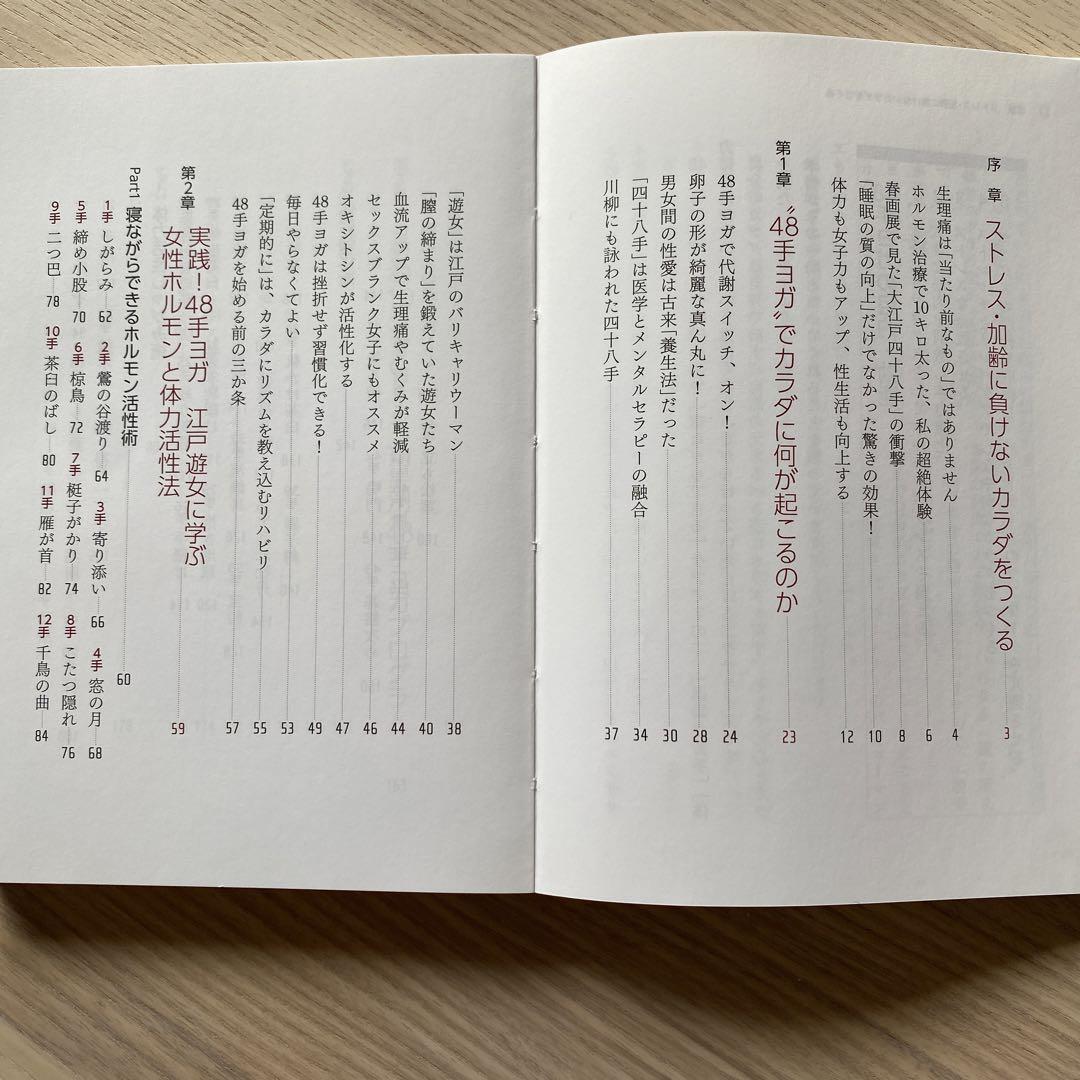 序 章 ストレス・加齢に負けないカラダをつくる 3
生理痛は「当たり前なもの」ではありません 4
ホルモン治療で10キロ太った、私の超絶体験 6
春画展で見た「大江戸四十八手」の衝撃 8
「睡眠の質の向上」だけでなかった驚きの効果! 10
体力も女子力もアップ、性生活も向上する 12
第1章 〝48手ヨガ〟でカラダに何が起こるのか 23
48手ヨガで代謝スイッチ、オン! 24
卵子の形が綺麗な真ん丸に! 28
男女間の性愛は古来「養生法」だった 30
「四十八手」は医学とメンタルセラピーの融合 34
川柳にも詠われた四十八手 37
「遊女」は江戸のバリキャリウーマン 38
「膣の締まり」を鍛えていた遊女たち 40
血流アップで生理痛やむくみが軽減 44
セックスブランク女子にもオススメ 46
オキシトシンが活性化する 47
48手ヨガは挫折せず習慣化できる! 49
毎日やらなくてよい 53
「定期的に」は、カラダにリズムを教え込むリハビリ 55
48手ヨガを始める前の三か条 57
第2章 実践!48手ヨガ 江戸遊女に学ぶ
女性ホルモンと体力活性法 59
Part1 寝ながらできるホルモン活性術 60
1手 しがらみ 62 2手 鶯の谷渡り 64 3手 寄り添い 66 4手 窓の月 68
5手 締め小股 70 6手 椋鳥 72 7手 梃子がかり 74 8手 こたつ隠れ 76
9手 二つ巴 78 10手 茶臼のばし 80 11手 雁が首 82 12手 千鳥の曲 84